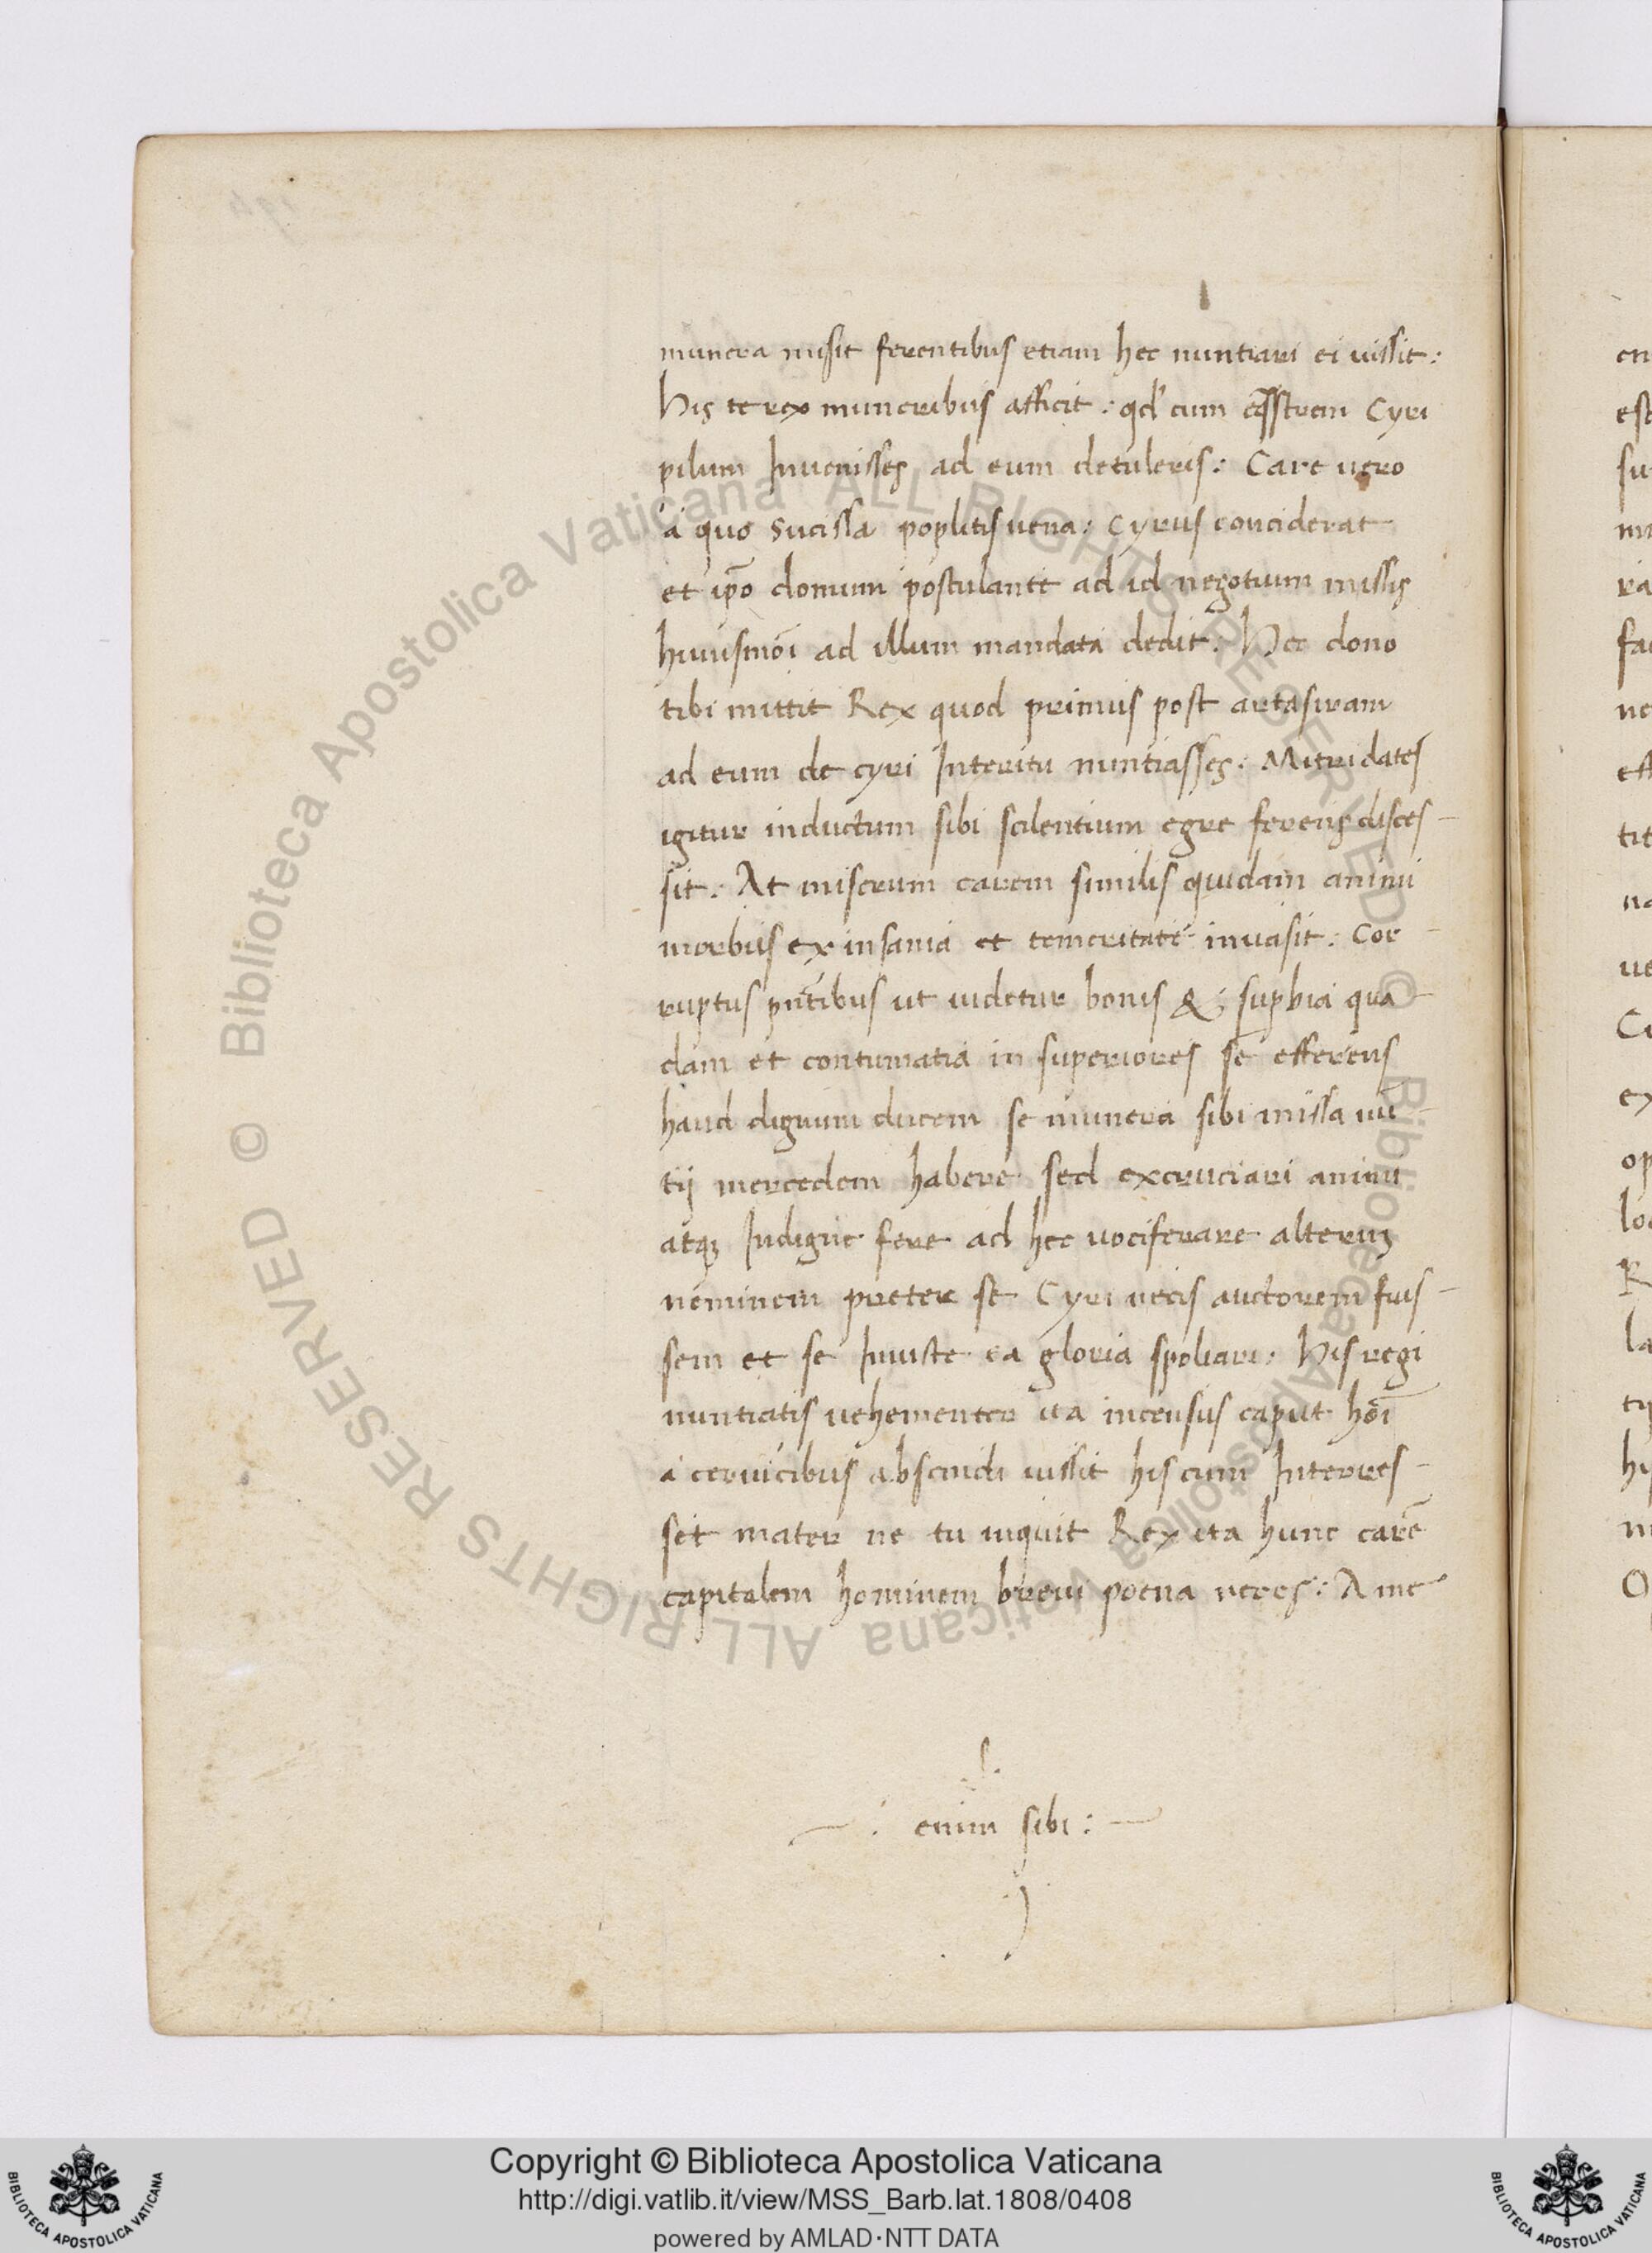 munera misit ferentibus etiam hec nuntiari ei iussit:
His te rex muneribus afficit: qd' cum equestrem Cyri
pilum Invenisses ad eum detuleris: Care vero
a quo sucissa poplitis vena: Cyrus conciderat
et ip̄o donum postulante ad id negotium missis
huiusmōi ad illum mandata dedit: Hec dono
tibi mittit Rex quod primus post artasiram
ad eum de cyri Interitu nuntiasses: Mitridates
igitur inductum sibi scilentium egre ferens disces-
sit: At miserum carem similis quidam animi
morbus ex insania et temeritate invasit: Cor-
ruptus pn̄tibus ut videtur bonis & supbia qua-
dam et contumatia in superiores se efferens
haud dignum ducem se munera sibi missa nū-
tij mercedem habere sed excruciari animi
atq; Indigne fere ad hec vociferare alterius
neminem preter se Cyri necis auctorem fuis-
sem et se Iniuste ea gloria spoliari: His regi
nuntiatis vehementer ita incensus caput hōi
a cervicibus abscindi iussit his cum Interes-
set mater ne tu inquit Rex ita hunc carē
capitalem hominem brevi poena neces: A me
enim sibi:
en
Copyright © Biblioteca Apostolica Vaticana
http://digi.vatlib.it/view/MSS_Barb.lat.1808/0408
powered by AMLAD·NTT DATA
BIBLIOTECA APOSTOLICA VATICANA
BIBLIOTECA APOSTOLICA VATICANA
© Biblioteca Apostolica Vaticana ALL RIGHTS RESERVED © Biblioteca Apostolica Vaticana ALL RIGHTS RESERVED